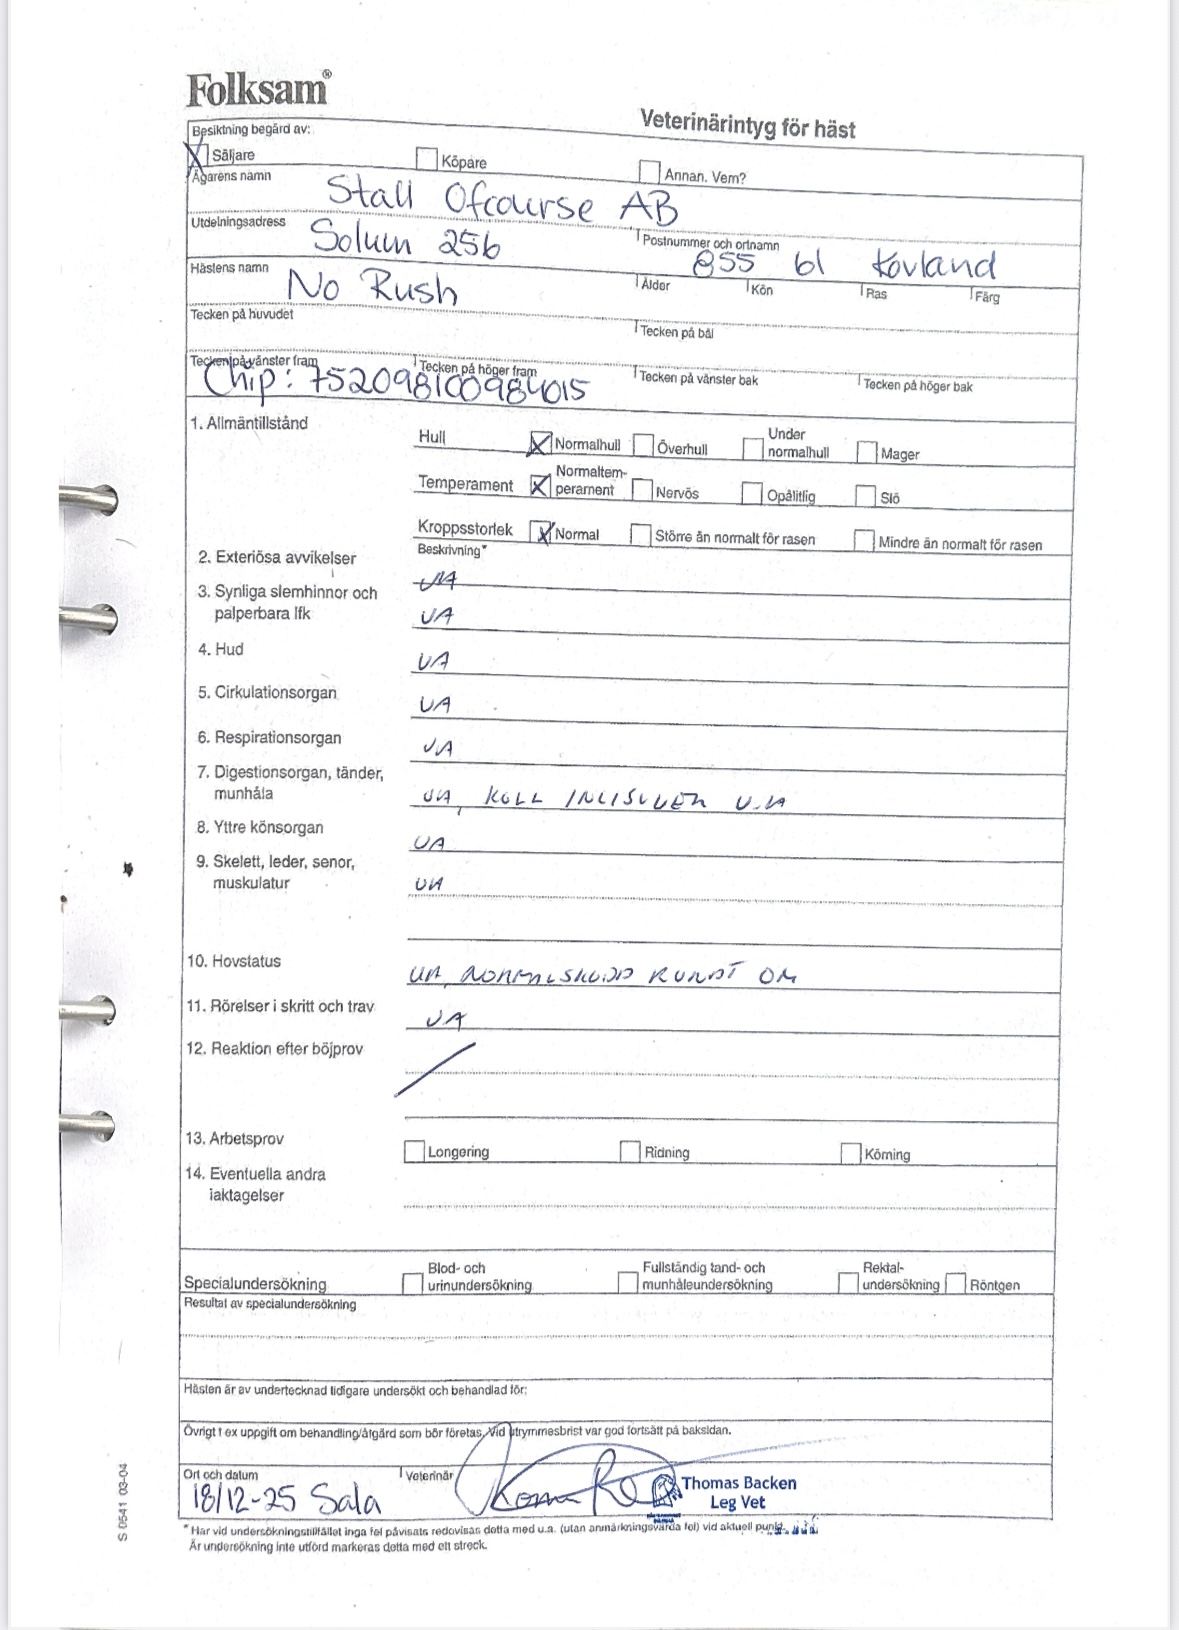 Folksam®
Veterinärintyg för häst
Besiktning begärd av:
X Säljare Köpare Annan. Vem?
Ägarens namn Stall Ofcourse AB
Utdelningsadress Solum 256 Postnummer och ortnamn 855 61 Kovland
Hästens namn No Rush Ålder Kön Ras Färg
Tecken på huvudet Tecken på bål
Tecken på vänster fram Tecken på höger fram Tecken på vänster bak Tecken på höger bak
Chip: 752098100984015
1. Allmäntillstånd
Hull X Normalhull Överhull Under normalhull Mager
Temperament X Normaltem-perament Nervös Opålitlig Slö
Kroppsstorlek X Normal Större än normalt för rasen Mindre än normalt för rasen
2. Exteriösa avvikelser Beskrivning*
UA
3. Synliga slemhinnor och
palperbara lfk UA
4. Hud UA
5. Cirkulationsorgan UA
6. Respirationsorgan UA
7. Digestionsorgan, tänder,
munhåla UA, KOLL INCISIVER U.A
8. Yttre könsorgan UA
9. Skelett, leder, senor,
muskulatur UA
10. Hovstatus UA, NORMALSKODD RUNDT OM
11. Rörelser i skritt och trav UA
12. Reaktion efter böjprov
13. Arbetsprov Longering Ridning Körning
14. Eventuella andra
iaktagelser
Specialundersökning Blod- och urinundersökning Fullständig tand- och munhåleundersökning Rektal-undersökning Röntgen
Resultat av specialundersökning
Hästen är av undertecknad tidigare undersökt och behandlad för:
Övrigt t ex uppgift om behandling/åtgärd som bör företas. Vid utrymmesbrist var god fortsätt på baksidan.
Ort och datum Veterinär
18/12-25 Sala
Thomas Backen
Leg Vet
* Har vid undersökningstillfället inga fel påvisats redovisas detta med u.a. (utan anmärkningsvärda fel) vid aktuell punkt.
Är undersökning inte utförd markeras detta med ett streck.
S 0541 03-04